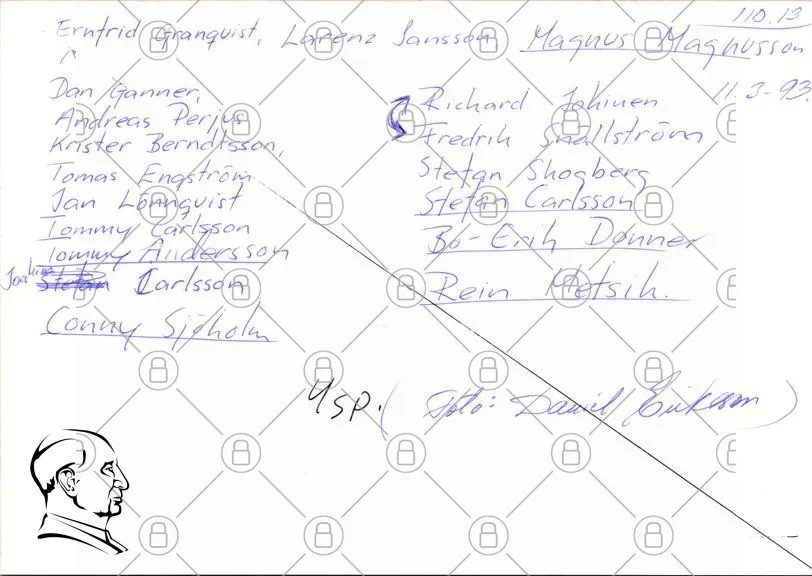 110.13
Ernfrid Granquist, Lorenz Jansson Magnus Magnusson
11.3-93.
Dan Ganner,
Andreas Perjus
Krister Berndtsson,
Tomas Engström
Jan Lönnquist
Tommy Carlsson
Tommy Andersson
Joakim Stefan Carlsson
Conny Sjöholm
Richard Johinen
Fredrik Snällström
Stefan Skogberg
Stefan Carlsson
Bo-Erik Donner
Rein Metsik.
4 sp. (Foto: Daniel Eriksson)